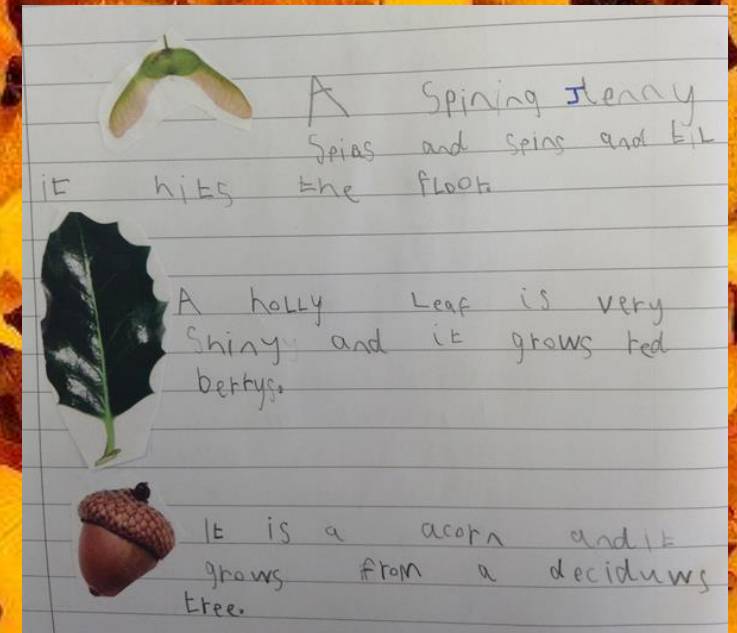 A Spining Jenny
Spins and spins and til
it hits the floor.
A holly Leaf is very
Shiny and it grows red
berrys.
It is a acorn and it
grows from a deciduws
tree.